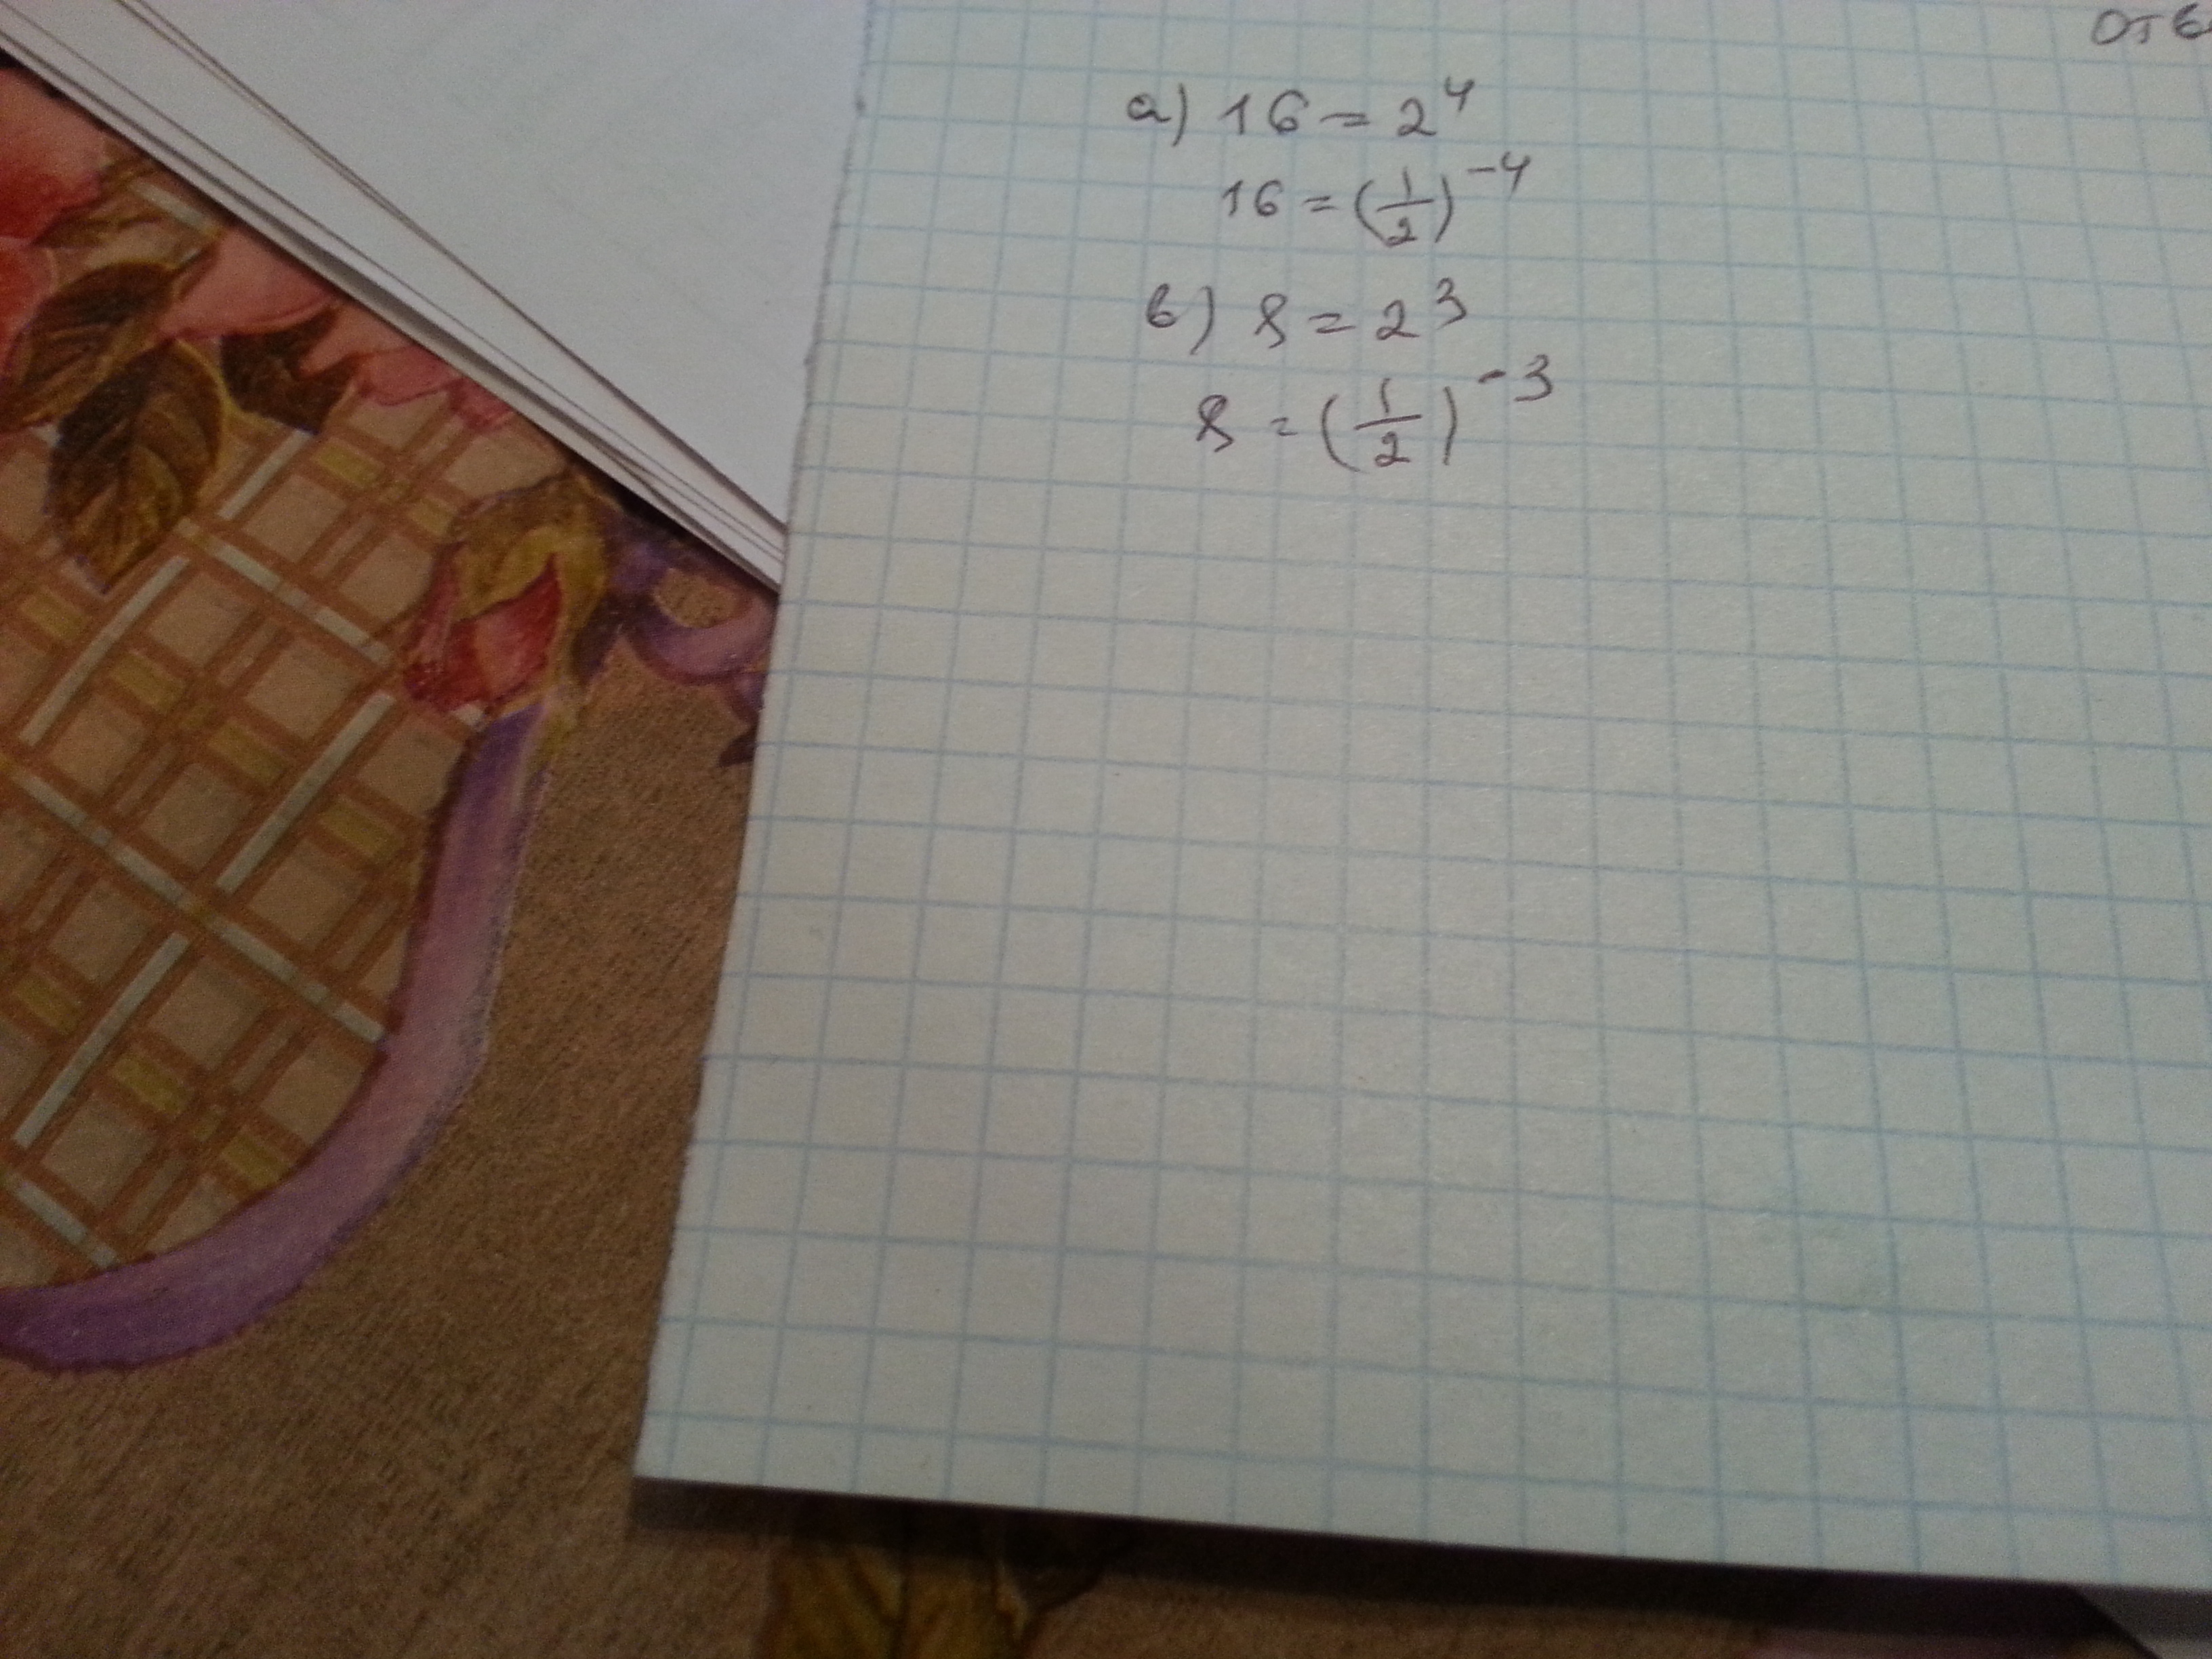 а) 16 = 2⁴
16 = (1/2)⁻⁴
в) 8 = 2³
8 = (1/2)⁻³